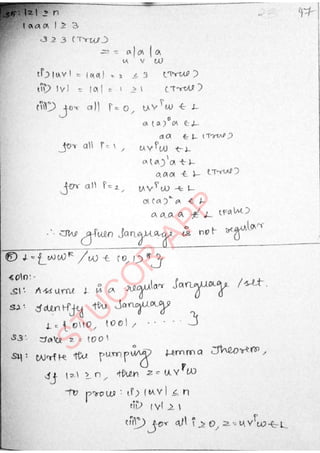 23 47
S5: |z| ≥ n
|aaa| ≥ 3
3 ≥ 3 (True)
z = a|a|a
u v w
(i) |uv| = |aa| = 2 ≤ 3 (True)
(ii) |v| = |a| = 1 ≥ 1 (True)
(iii) for all i=0, uvⁱw ∈ L
a(a)⁰a ∈ L
aa ∈ L (True)
for all i=1, uvⁱw ∈ L
a(a)¹a ∈ L
aaa ∈ L (True)
for all i=2, uvⁱw ∈ L
a(a)²a ∈ L
aaaa ∈ L (False)
∴ The given language is not regular
⑤ L = { wwᴿ / w ∈ (0,1)* }
Soln:-
S1: Assume L is a regular language / set.
S2: Identify the language
L = { 0110, 1001, ..... }
S3: Take z = 1001
S4: Write the pumping Lemma Theorem,
If |z| ≥ n, then z = uvⁱw
To prove: (i) |uv| ≤ n
(ii) |v| ≥ 1
(iii) for all i ≥ 0, z = uvⁱw ∈ L
STUCOR APP